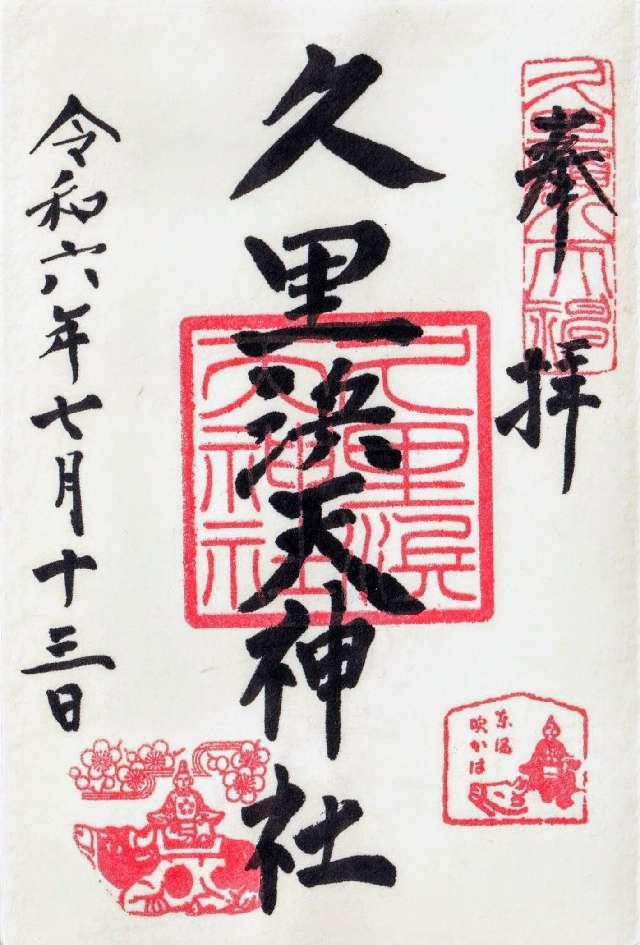 奉拝
久里浜天神社
久里浜
天神社
令和六年七月十三日
東風
吹かは